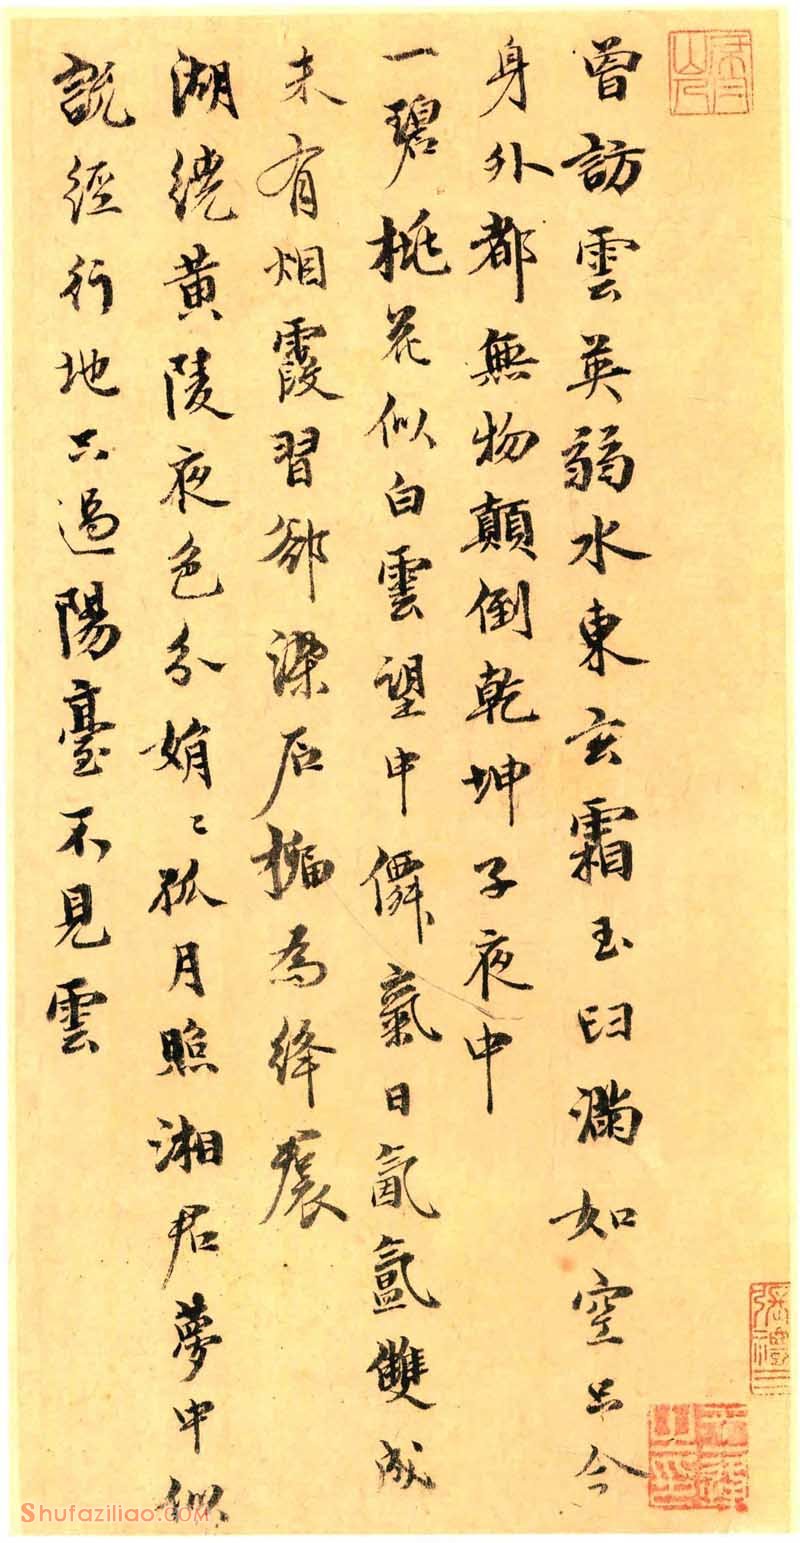 曾訪雲英弱水東玄霜玉臼滿如空只今
身外都無物顛倒乾坤子夜中
一碧桃花似白雲望中僊氣日氤氳雙成
未有烟霞習郤染石榴為絳裠
湖繞黃陵夜色分娟〻孤月照湘君夢中似
說經行地只過陽臺不見雲
Shufaziliao.com